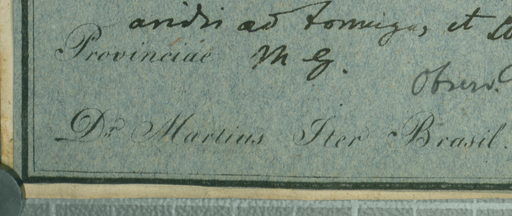 aridis ad formigas, et
Provinciae M G.
Observ.
Dr. Martius Iter Brasil.